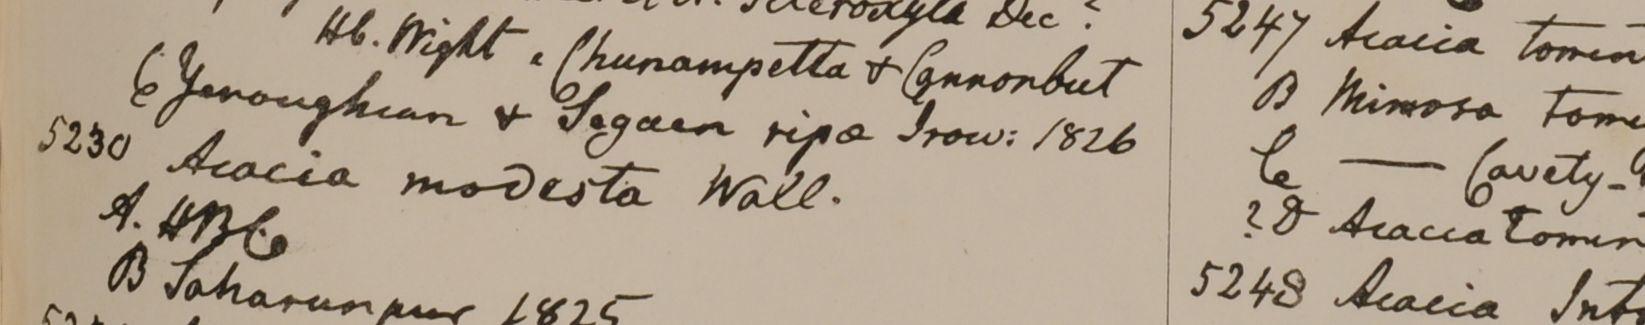 Scleroxyla Dec?
Hb. Wight, Chunampetta & Connonbut
C Yenoughuan & Segaen ripa Irow: 1826
5230 Acacia modesta Wall.
A. HBC
B Saharunpur 1825
5247 Acacia tomen
B Mimosa tome
C — Cavety-
?D Acacia tomen
5248 Acacia Int